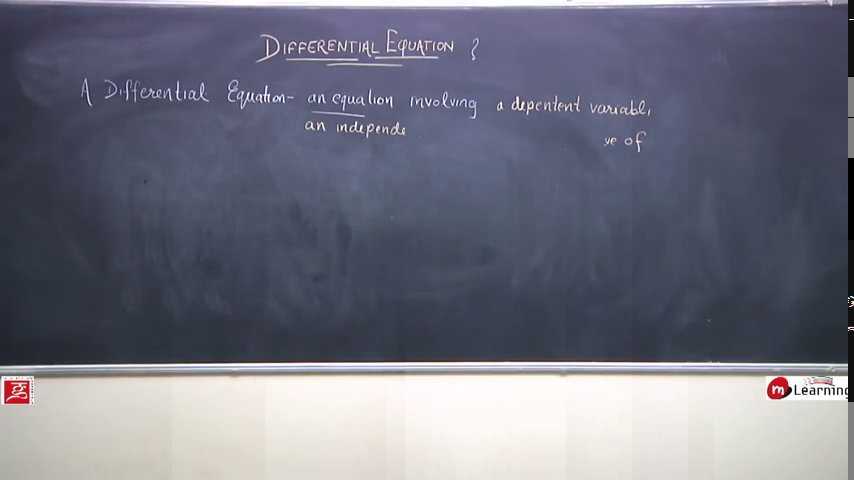 DIFFERENTIAL EQUATION ?
A Differential Equation- an equation involving a depentent variabl,
an independe ve of
m Learning